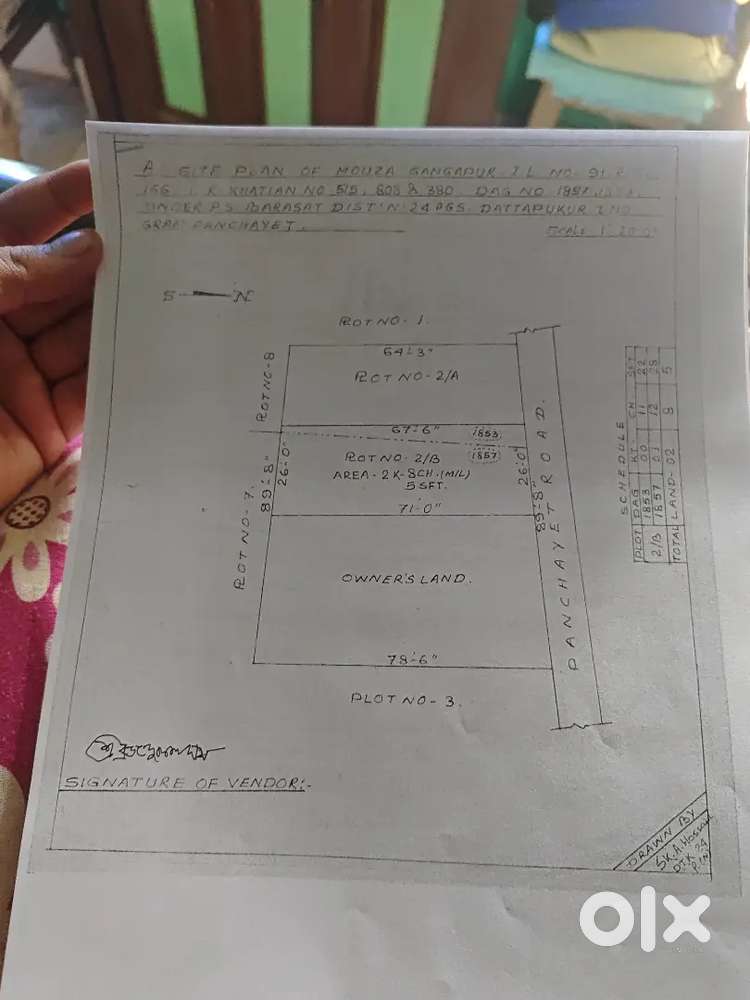 A SITE PLAN OF MOUZA GANGAPUR J L NO- 91 R
166 L R KHATIAN NO 515, 808 & 380 DAG NO 1857,
UNDER P.S BARASAT DIST N 24 PGS. DATTAPUKUR I NO
GRAM PANCHAYET.
SCALE 1" 20'0"
S N
PLOT NO- 1.
PLOT NO- 8
64'-3"
PLOT NO- 2/A
67'-6"
1853
PLOT NO- 2/B
1857
AREA- 2 K- 8 CH. (M/L)
5 SFT.
26'-0"
26'-0"
89'-8"
89'-8"
71'-0"
PLOT NO- 7.
PANCHAYET ROAD.
OWNER'S LAND.
78'-6"
PLOT NO- 3.
SCHEDULE
PLOT DAG KT. CH SFT
2/B 1853 00 11 22
1857 01 12 28
TOTAL LAND- 02 8 5
SIGNATURE OF VENDOR:-
DRAWN BY
SK. A.
olx